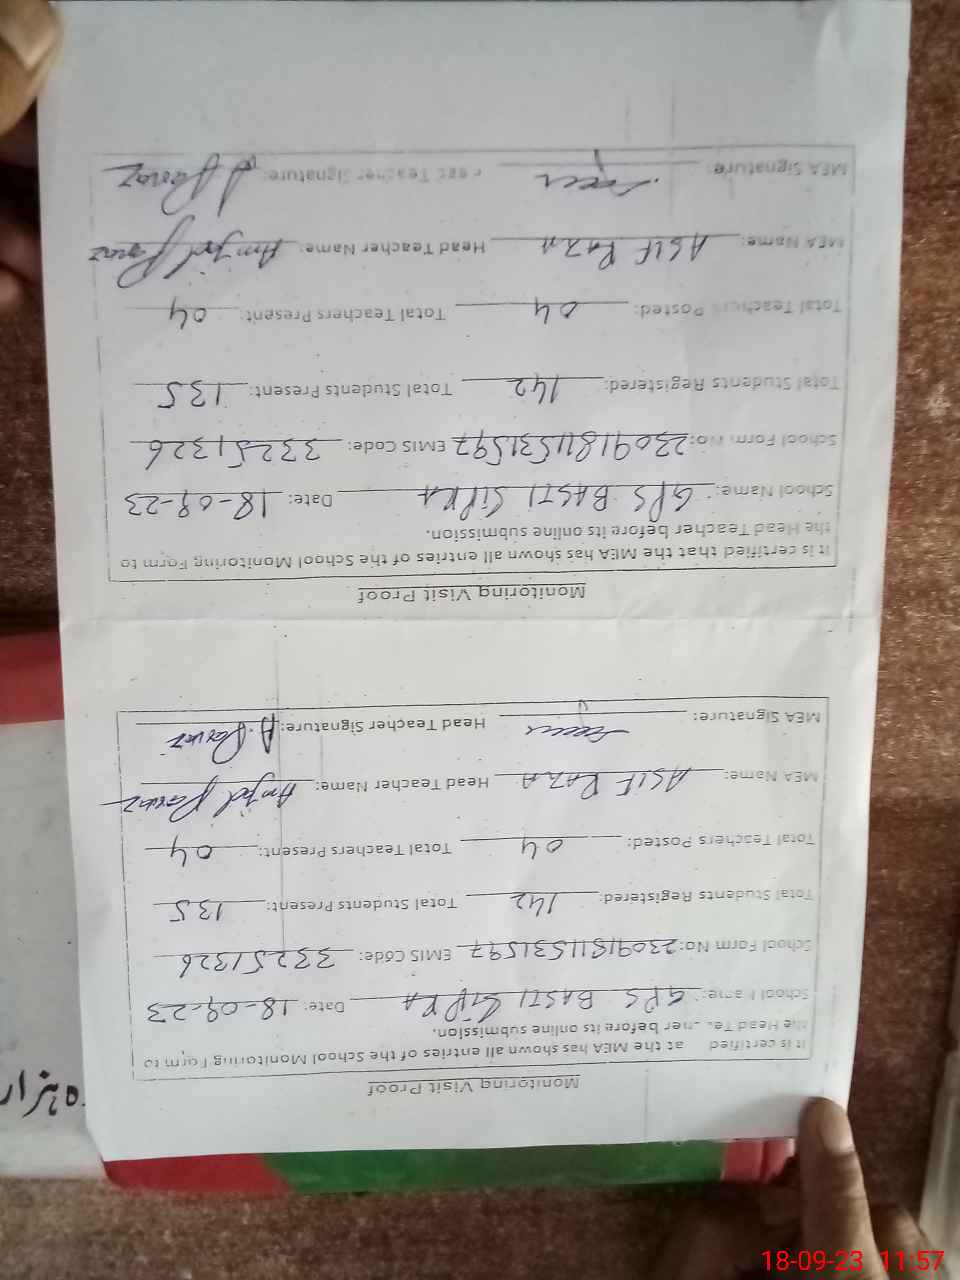 Monitoring Visit Proof
It is certified at the MEA has shown all entries of the School Monitoring Form to
the Head Te ner before its online submission.
School Name: GPS BASTI SIPRA Date: 18-09-23
School Form No: 23091811531597 EMIS Code: 33251326
Total Students Registered: 142 Total Students Present: 135
Total Teachers Posted: 04 Total Teachers Present: 04
MEA Name: ASIF RAZA Head Teacher Name: Amjad Parvaz
MEA Signature: Head Teacher Signature: A. Parvaz
Monitoring Visit Proof
It is certified that the MEA has shown all entries of the School Monitoring Form to
the Head Teacher before its online submission.
School Name: GPS BASTI SIPRA Date: 18-09-23
School Form No: 23091811531597 EMIS Code: 33251326
Total Students Registered: 142 Total Students Present: 135
Total Teachers Posted: 04 Total Teachers Present: 04
MEA Name: ASIF RAZA Head Teacher Name: Amjad Parvaz
MEA Signature: Head Teacher Signature: A Parvaz
ہزار
18-09-23 11:57